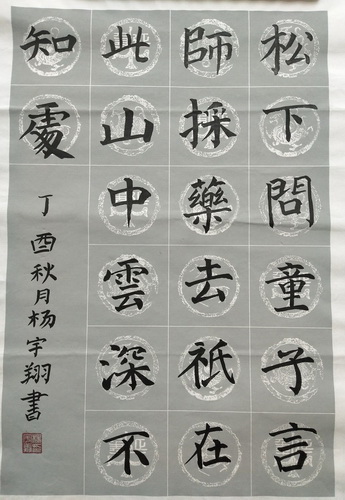 松下問童子言
師採藥去祇在
此山中雲深不
知處
丁酉秋月杨宇翔書